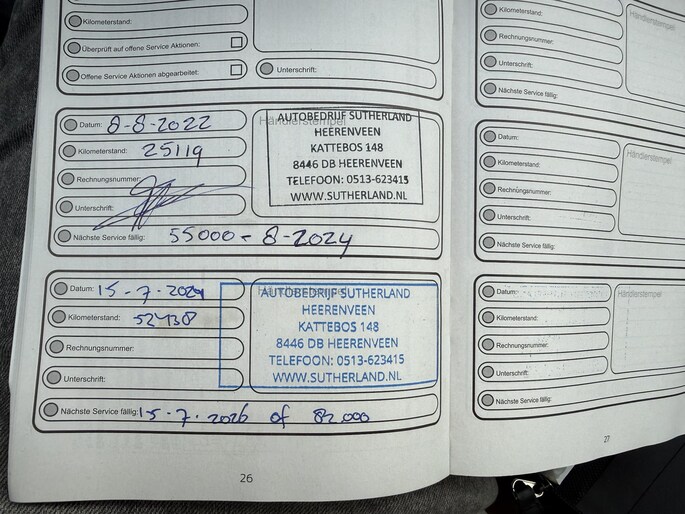 Kilometerstand:
Überprüft auf offene Service Aktionen:
Offene Service Aktionen abgearbeitet:
Unterschrift:
Datum: 8-8-2022
Kilometerstand: 25119
Rechnungsnummer:
Unterschrift:
Nächste Service fällig: 55000 - 8-2024
Händlerstempel
AUTOBEDRIJF SUTHERLAND
HEERENVEEN
KATTEBOS 148
8446 DB HEERENVEEN
TELEFOON: 0513-623415
WWW.SUTHERLAND.NL
Datum: 15-7-2024
Kilometerstand: 52438
Rechnungsnummer:
Unterschrift:
Nächste Service fällig: 15-7-2026 of 82.000
AUTOBEDRIJF SUTHERLAND
HEERENVEEN
KATTEBOS 148
8446 DB HEERENVEEN
TELEFOON: 0513-623415
WWW.SUTHERLAND.NL
26
Kilometerstand:
Rechnungsnummer:
Unterschrift:
Nächste Service fällig:
Händlerstempel
Datum:
Kilometerstand:
Rechnungsnummer:
Unterschrift:
Nächste Service fällig:
Händlerstempel
Datum:
Kilometerstand:
Rechnungsnummer:
Unterschrift:
Nächste Service fällig:
Händlerstempel
27